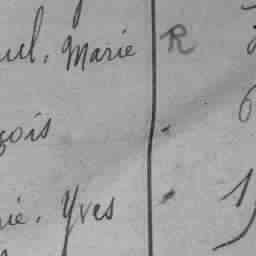 uel, Marie R
çois
rie, Yves 1